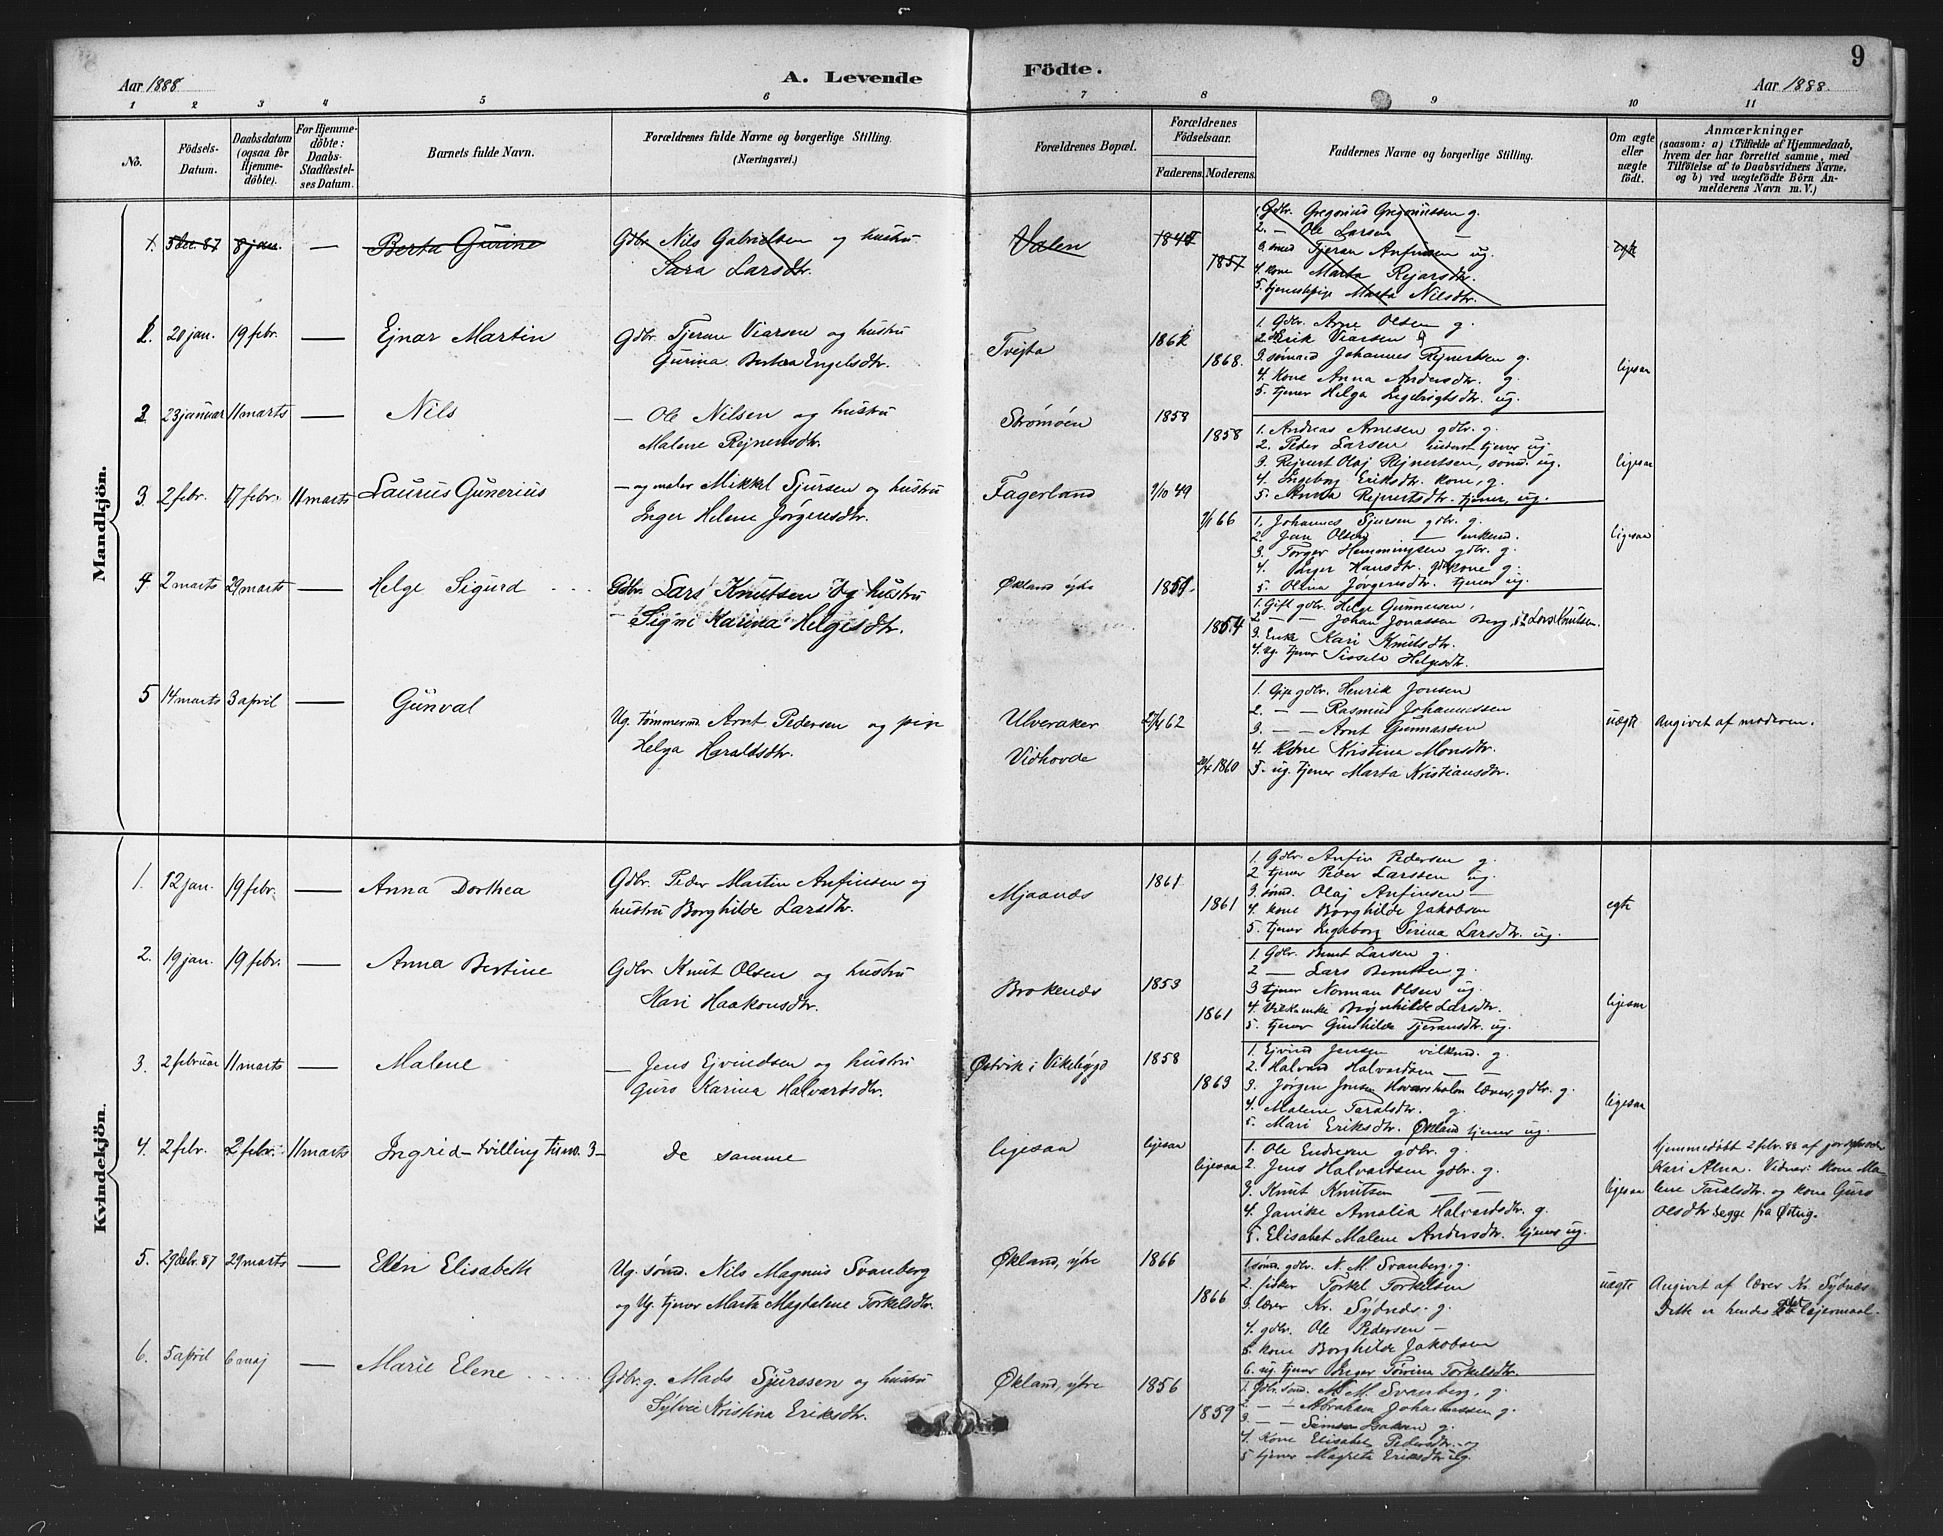 9
Aar 1888
A. Levende
Födte.
Aar 1888.
1 2 3 4 5 6 7 8 9 10 11
No.
Födsels-
Datum.
Daabsdatum
(ogsaa for
Hjemme-
döbte).
For Hjemme-
döbte:
Daabs-
Stadfæstel-
ses Datum.
Barnets fulde Navn.
Forældrenes fulde Navne og borgerlige Stilling.
(Næringsvei.)
Forældrenes Bopæl.
Forældrenes
Födselsaar.
Faderens. Moderens.
Faddernes Navne og borgerlige Stilling.
Om ægte
eller
uægte
födt.
Anmærkninger
(saasom: a) i Tilfælde af Hjemmedaab,
hvem der har forrettet samme, med
Tilföielse af to Daabsvidners Navne,
og b) ved uægtefödte Börn An-
melderens Navn m. V.)
Mandkjön.
1. 5 dec. 87 8 jan. — Berta Gurine
Gdbr. Nils Gabrielsen og hustru
Sara Larsdtr.
Valen
1857
1. Gdbr. Gregorius Gregoriussen g.
2. — Ole Larsen
3. smed Tjeran Anfinsen ug.
4. kone Marta Rejarsdtr.
5. tjenestepige Marta Nilsdtr.
egte
20 jan. 19 febr. — Ejnar Martin
Gdbr. Tjeran Viarsen og hustru
Gurina Bertea Engelsdtr.
Tvejta
1868.
1. Gdbr. Arne Olsen g.
2. Erik Viarsen
3. sømand Johannes Rejnertsen g.
4. Kone Anna Andersdtr. g.
5. tjener Helga Ingebrigtsdtr. ug.
ligesaa
2. 23 januar 11 marts — Nils
— Ole Nilsen og hustru
Malene Rejnertsdtr.
Strømøen
1859
1858
1. Andreas Arnesen gdbr. g.
2. Peder Larsen tjener ug.
3. Rejnert Olaj Rejnertsen, sømd. ug.
4. Ingeborg Eriksdtr. kone, g.
5. Anna Rejnertsdtr. tjener, ug.
ligesaa
3. 2 febr. 17 febr. 11 marts Laurus Gunerius
— og maler Mikkel Sjursen og hustru
Inger Helene Jørgensdtr.
Fagerland
9/10 49
9/1 66
1. Johannes Sjursen gdbr. g.
2. Jon Olsen — enkem.
3. Torger Hemmingsen gdbr. g.
4. Inger Hansdtr. kone g.
5. Olina Jørgensdtr. tjener ug.
ligesaa
4 2 marts 29 marts — Helge Sigurd
Gdbr. Lars Knutsen og hustru
Signi Karina Helgesdtr.
Økland ytre
1854
1. Gift gdbr. Helge Gunnarsen,
2. — Johan Jonassen Berg, Lars Knutsen.
3. Enke Kari Knutsdtr.
4. Ug. tjener Sissela Helgesdtr.
5 14 marts 3 april — Gunval
Ug. tømmermd. Arnt Pedersen og pige
Helga Haraldsdtr.
Ulveraker
Vidhovde
27/4 62
20/4 1860
1. Gift gdbr. Henrik Jonsen
2. — — Rasmus Johannessen
3. — — Arnt Gunnarsen
4. Kone Kristina Monsdtr.
5. ug. tjener Marta Kristiansdtr.
uægte
Angivet af moderen.
Kvindekjön.
1. 12 jan. 19 febr. — Anna Dorthea
Gdbr. Peder Martin Anfinsen og
hustru Borghilde Larsdtr.
Mjaanes
1861
1861
1. Gdbr. Anfin Pedersen g.
2 tjener Peder Larssen ug.
3. sømd. Olaj Anfinsen —
4. kone Borghilde Jakobsen
5. tjener Ingeborg Serina Larsdtr. ug.
egte
2. 19 jan. 19 febr. — Anna Bertine
Gdbr. Knut Olsen og hustru
Kari Haakonsdtr.
Brokenes
1853
1861
1. Gdbr. Bernt Larsen g.
2 — Lars Berntsen g.
3 tjener Norman Olsen ug.
4. Brynhilde Larsdtr.
5. tjener Gunhilde Tjeransdtr. ug.
ligesaa
3. 2 februar 11 marts — Malene
— Jens Ejvindsen og hustru
Guro Karina Halvardsdtr.
Østvik i Vikebygd
1858
1863
1. Ejvind Jensen g.
2. Halvard Halvardsen — —
3. Jørgen Jensen lærer, gdbr. g.
4. Malene Taralsdtr. g.
5. Mari Eriksdtr. Økland tjener ug.
ligesaa
4. 2 febr. 2 febr. 11 marts Ingrid - tvilling til no. 3 -
De samme
ligesaa
ligesaa
ligesaa
1. Ole Endresen gdbr. g.
2. Jens Halvardsen gdbr. g.
3. Knut Knutsen —
4. Janike Amalia Halvardsdtr. g.
5. Elisabet Malene Andersdtr. tjener ug.
ligesaa
Hjemmedøbt 2 febr. 88 af jordmoder
Kari Alna. Vidner: Kone Ma-
lene Taralsdtr. og kone Guro
Olsdtr. begge fra Østvig.
5. 29 29 marts — Elen Elisabeth
Ug. sømd. Nils Magnus Svanberg
og Ug. tjener Marta Magdalene Torkelsdtr.
Økland, ytre
1866
1866
1. sømd. gdbr. N. M. Svanberg, g.
2. fisker Torkel Torkelsen
3. lærer Kr. Sydnes. g.
4. gdbr. Ole Pedersen —
5. kone Borghilde Jakobsen
6. ug. tjener Inger Torina Torkelsdtr.
uægte
Angivet af lærer Kr. Sydnes
Dette er hendes lejermaal.
6. 5 april 6 maj — Marie Elene
Gdbr. g. Mads Sjurssen og hustru
Sylvei Kristina Eriksdtr.
Økland, ytre
1856
1859
1. Gdbr. sømd. N. M. Svanberg, g.
2. — — Abraham Johannessen g.
3. — — g.
4. Kone Elisabet Pedersdtr. g
5 tjener Magreta Eriksdtr. ug.